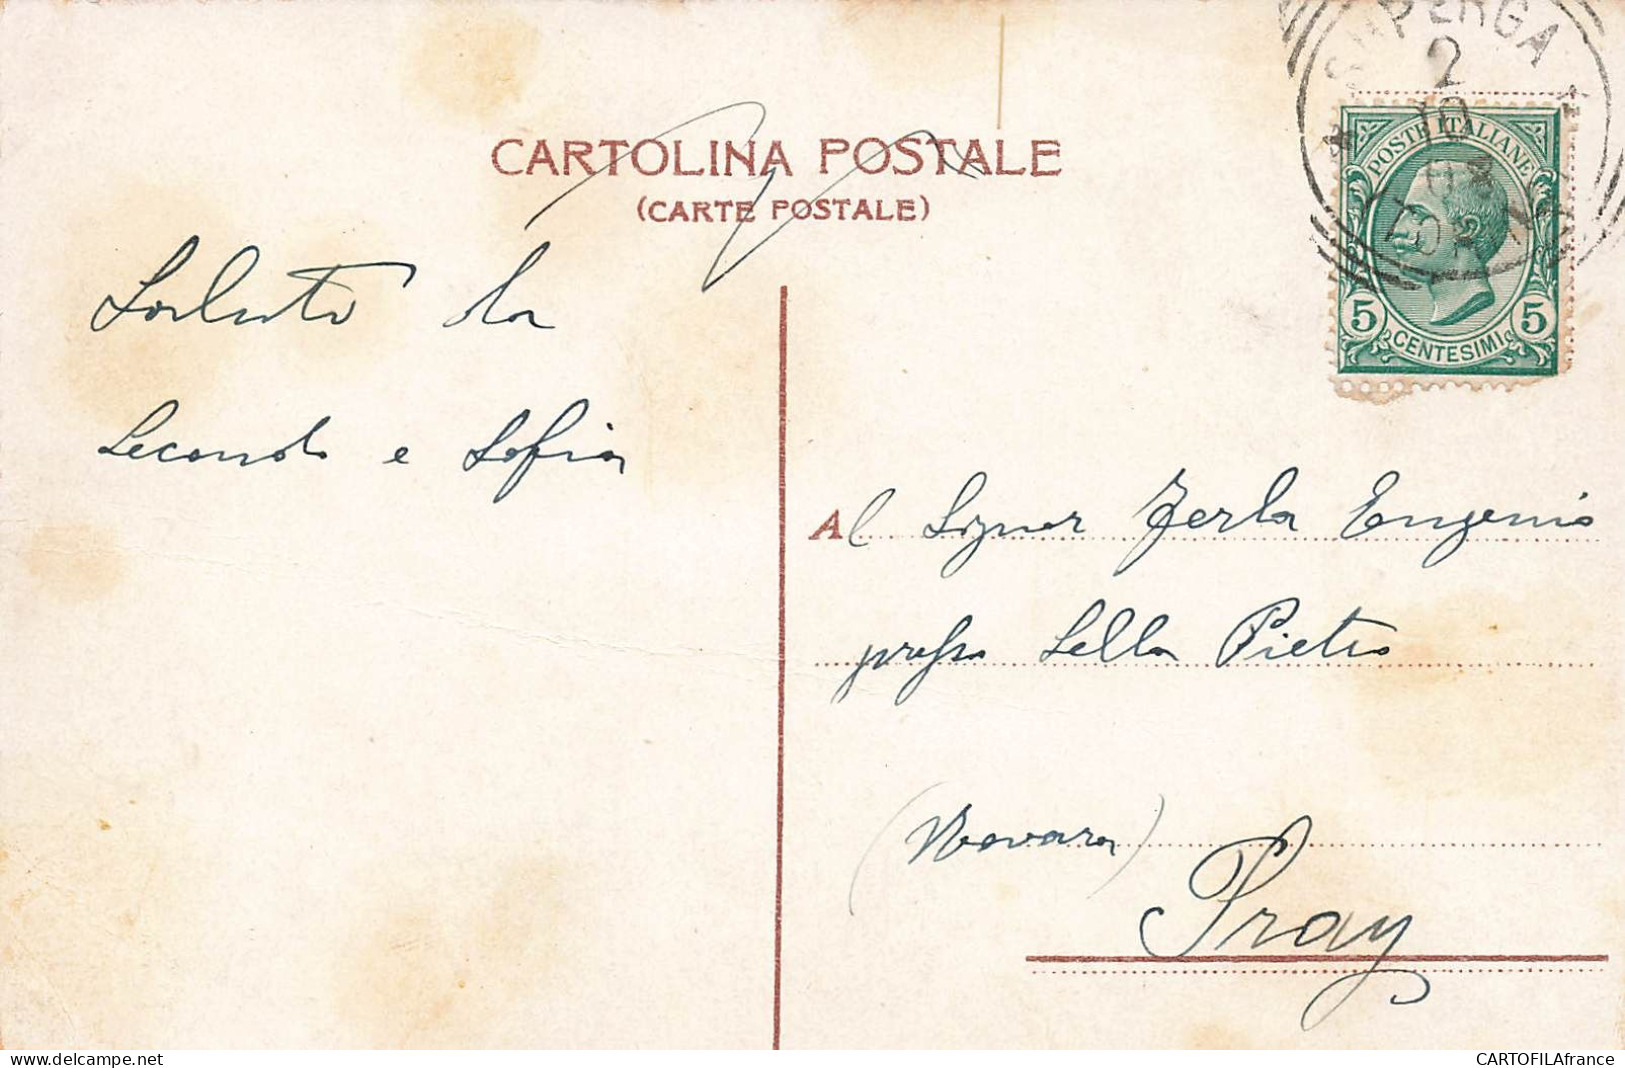 CARTOLINA POSTALE
(CARTE POSTALE)
SUPERGA
2
10
08
POSTE ITALIANE
5 CENTESIMI 5
Saluto da
Secondo e Sofia
Al Signor Zerla Eugenio
presso Sella Pietro
(Novara)
Pray
delcampe.net
CARTOFILAfrance